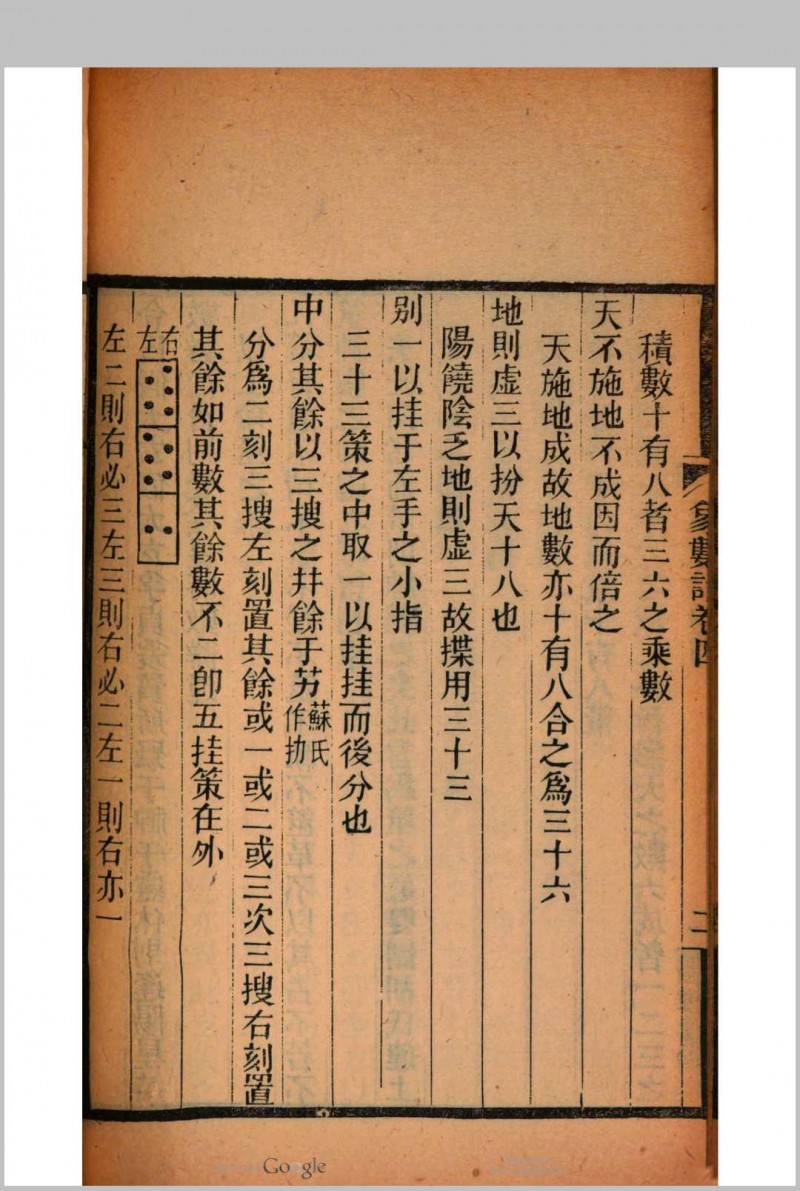 象數論卷四
二
積數十有八者三六之乘數
天不施地不成因而倍之
天施地成故地數亦十有八合之爲三十六
地則虛三以扮天十八也
陽饒陰乏地則虛三故揲用三十三
別一以挂于左手之小指
三十三策之中取一以挂挂而後分也
中分其餘以三搜之幷餘于艻蘇氏作扐
分爲二刻三搜左刻置其餘或一或二或三次三搜右刻置
其餘如前數其餘數不二卽五挂策在外
右
左
左二則右必三左三則右必二左一則右亦一
Google